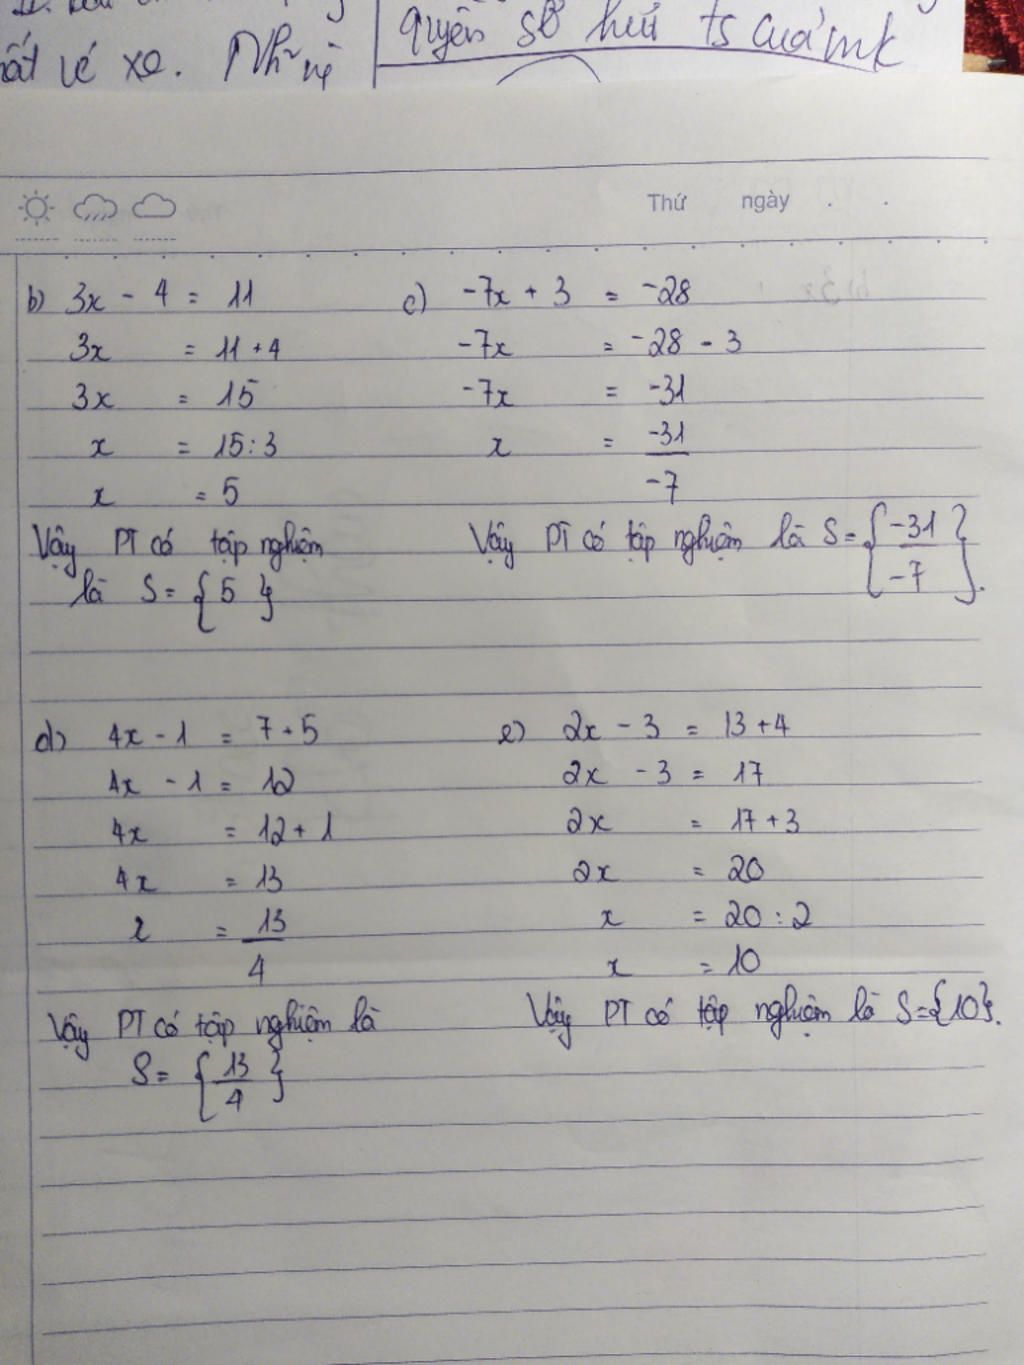 vé xe. Như vậy
quyền sở hữu ts của mk
Thứ ngày . .
b) 3x - 4 = 11
3x = 11 + 4
3x = 15
x = 15 : 3
x = 5
Vậy PT có tập nghiệm
là S = { 5 }
c) -7x + 3 = -28
-7x = -28 - 3
-7x = -31
x = -31/-7
Vậy PT có tập nghiệm là S = { -31/-7 }.
d) 4x - 1 = 7 + 5
4x - 1 = 12
4x = 12 + 1
4x = 13
x = 13/4
Vậy PT có tập nghiệm là
S = { 13/4 }
e) 2x - 3 = 13 + 4
2x - 3 = 17
2x = 17 + 3
2x = 20
x = 20 : 2
x = 10
Vậy PT có tập nghiệm là S = {10}.